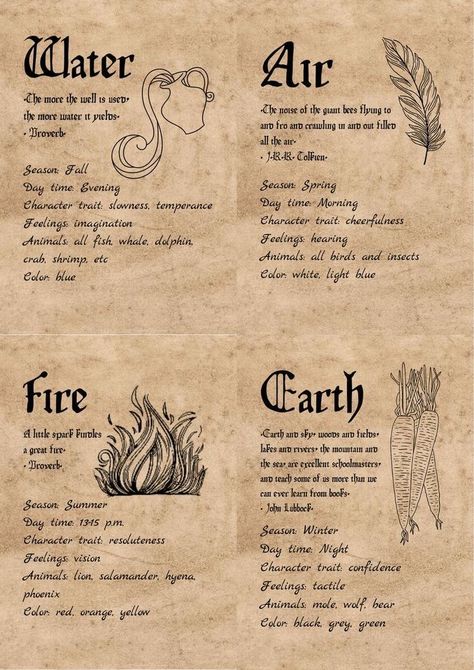 Water
«The more the well is used,
the more water it yields»
- Proverb
Season: Fall
Day time: Evening
Character trait: slowness, temperance
Feelings: imagination
Animals: all fish, whale, dolphin,
crab, shrimp, etc
Color: blue
Air
«The noise of the giant bees flying to
and fro and crawling in and out filled
all the air»
- J.R.R. Tolkien
Season: Spring
Day time: Morning
Character trait: cheerfulness
Feelings: hearing
Animals: all birds and insects
Color: white, light blue
Fire
A little spark kindles
a great fire»
- Proverb
Season: Summer
Day time: 13:45 p.m.
Character trait: resoluteness
Feelings: vision
Animals: lion, salamander, hyena,
phoenix
Color: red, orange, yellow
Earth
«Earth and sky, woods and fields,
lakes and rivers, the mountain and
the sea, are excellent schoolmasters,
and teach some of us more than we
can ever learn from books»
- John Lubbock
Season: Winter
Day time: Night
Character trait: confidence
Feelings: tactile
Animals: mole, wolf, bear
Color: black, grey, green